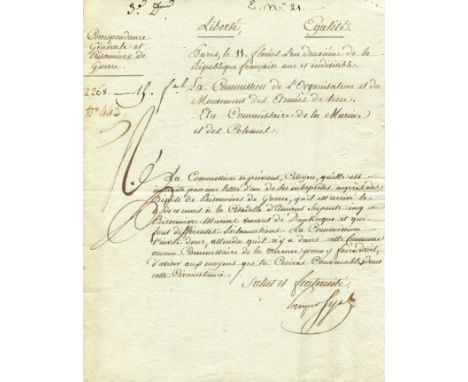 3.e Don
E. N.o 21.
Liberté, Egalité,
Correspondance
Générale et
Prisonniers de
Guerre
Paris, le 11 floréal L'an deuxième de la
République française une et indivisible.
2268 — 15.
N.o 443
La Commission de l'Organisation et du
Mouvement des Armées de terre
Au Commissaire de la Marine
et des Colonies
La Commission te prévient, Citoyen, qu'elle est
par une lettre d'un de ses interprètes
Dépôts de Prisonniers de Guerre, qu'il est arrivé le
à la Citadelle d'Amiens Soixante cinq
Prisonniers Marins venant de Dunkerque et qui
font différentes réclamations. La Commission
t'invite donc, attendu qu'il n'y a dans cette Commune
aucun Commissaire de la Marine pour y faire droit,
d'aviser aux moyens que tu croiras Convenables dans
cette Circonstance.
Salut et fraternité